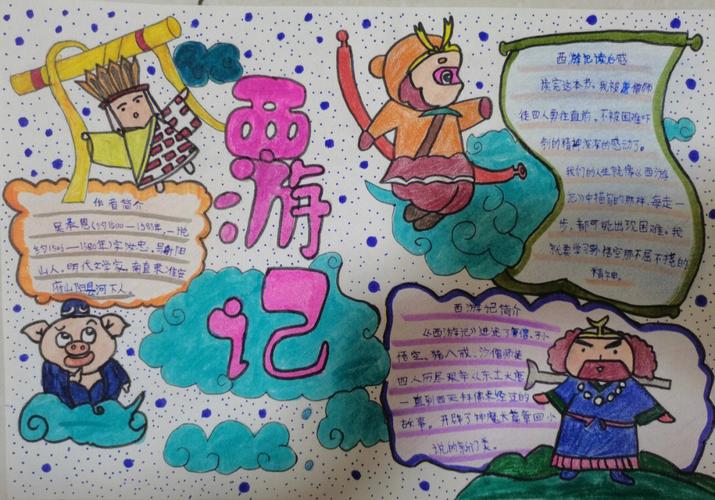 西游记
作者简介
吴承恩(约1500—1583年,一说
约1505—1580年)字汝忠,号射阳
山人,明代文学家,南直隶淮安
府山阳县河下人。
西游记读后感
读完这本书,我被唐僧师
徒四人勇往直前,不被困难吓
倒的精神深深的感动了。
我们的人生就像《西游
记》中描绘的那样,每走一
步,都可能出现困难,我
们要学习孙悟空那不屈不挠的
精神。
西游记简介
《西游记》讲述了唐僧、孙
悟空、猪八戒、沙僧师徒
四人历尽艰辛从东土大唐
一直到西天拜佛求经过的
故事,开辟了神魔长篇章回小
说的新门类。